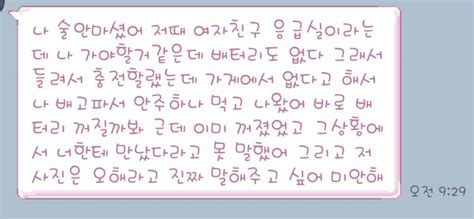 나 술안마셨어 저때 여자친구 응급실이라는
데 나 가야할거같은데 배터리도 없다 그래서
들려서 충전할랬는데 가게에서 없다고 해서
나 배고파서 안주하나 먹고 나왔어 바로 배
터리 꺼질까봐 근데 이미 꺼졌었고 그상황에
서 너한테 만났다라고 못 말했어 그리고 저
사진은 오해라고 진짜 말해주고 싶어 미안해
오전 9:29